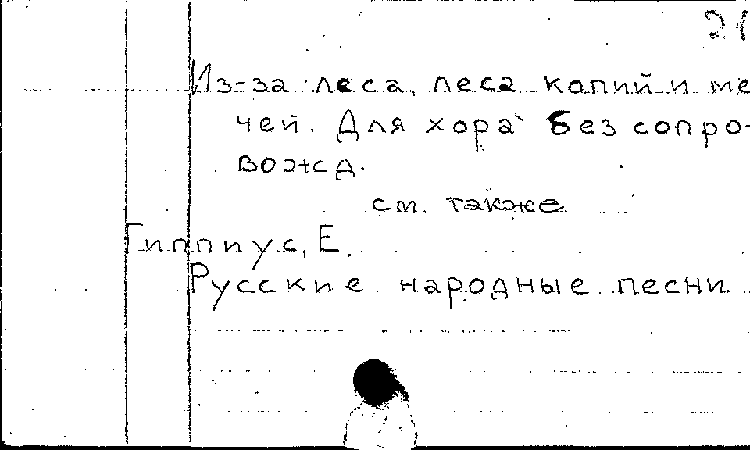 21
Из-за леса, леса копий и ме
чей. Для хора без сопро-
вожд.
см. также
Гиппиус, Е.
Русские народные песни